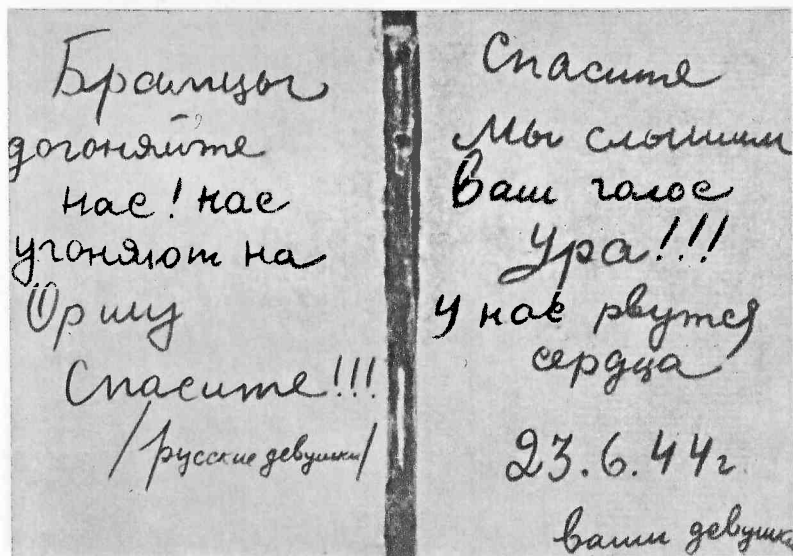 Братцы
догоняйте
нас! нас
угоняют на
Оршу
Спасите!!!
/русские девушки/
Спасите
Мы слышим
Ваш голос
Ура!!!
У нас рвутся
сердца
23.6.44г.
ваши девушки